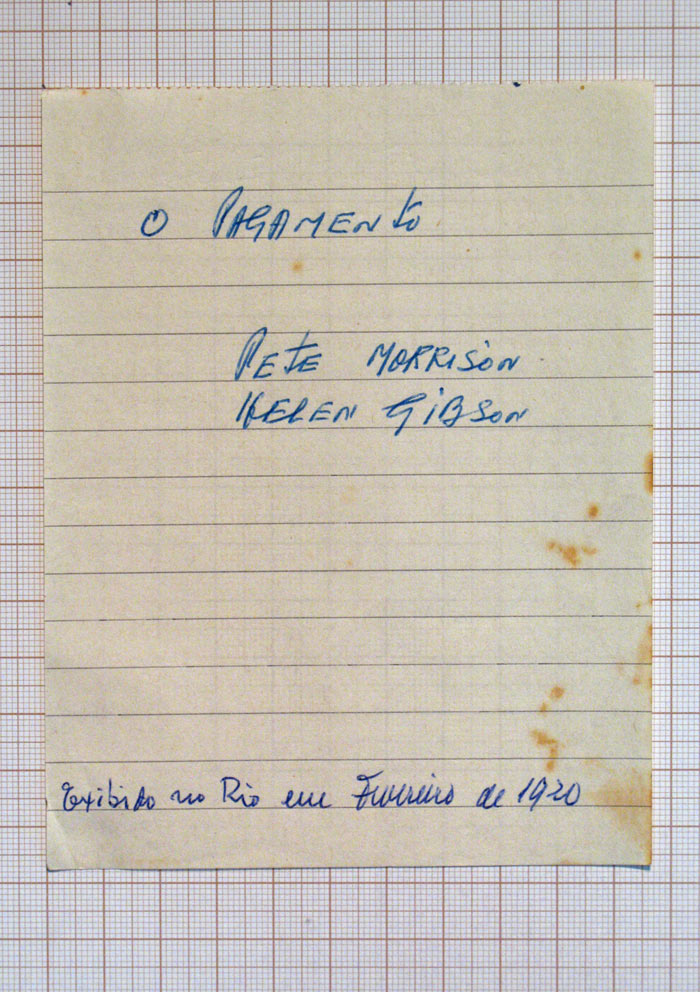 O PAGAMENTO
PETE MORRISON
HELEN GIBSON
Exibido no Rio em Fevereiro de 1920